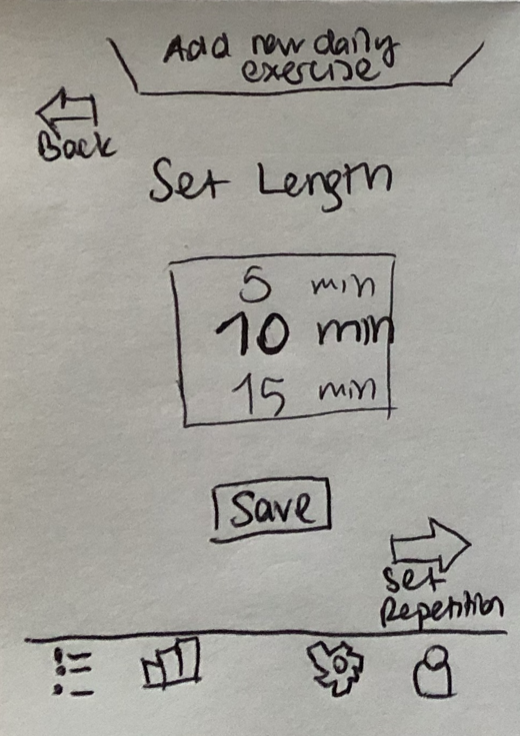 Add new daily
exercise
Back
Set Length
5 min
10 min
15 min
Save
Set
Repetition